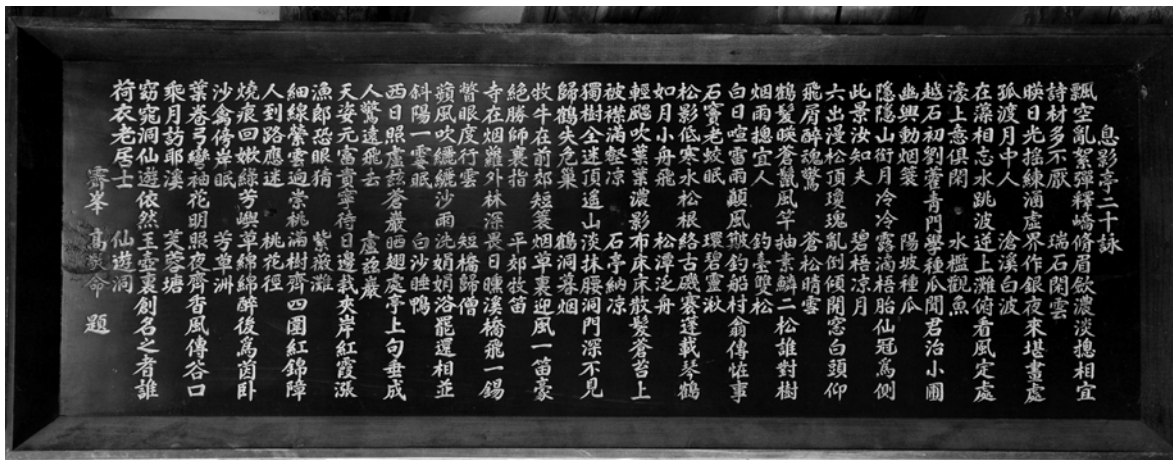 息影亭二十詠
飄空亂絮彈釋嶠脩眉飲濃淡摠相宜
詩材多不厭 瑞石閑雲
暎日光搖練涵虛界作銀夜來堪畫處
孤渡月中人 滄溪白波
在藻相忘水跳波逆上灘俯看風定處
濠上意俱閑 水檻觀魚
越石初劚藿青門學種瓜聞君治小圃
幽興動烟簑 陽坡種瓜
隐隐山銜月冷冷露滴梧胎仙冠爲側
此景汝知夫 碧梧凉月
六出漫松頂瓊瑰亂倒傾開窓白頭仰
飛屑醉魂驚 蒼松晴雪
鶴髮暎蒼鬣風竿抽素鱗二松誰對樹
烟雨摠宜人 釣臺雙松
白日喧雷雨顚風簸釣船村翁傳恠事
石竇老蛟眠 環碧靈湫
松影低寒水松根絡古磯褰蓬載琴鶴
如月小舟飛 松潭泛舟
輕颸吹葉葉濃影布床床散髮蒼苔上
披襟滿壑凉 石亭納凉
獨樹全迷頂遙山淡抹腰洞門深不見
歸鶴失危巢 鶴洞暮烟
牧牛在前郊短簑烟草裏迎風一笛豪
絶勝師襄指 平郊牧笛
寺在烟蘿外林深畏日曛溪橋飛一錫
瞥眼度行雲 短橋歸僧
蘋風吹纚纚沙雨洗娟娟浴罷還相並
斜陽一霎眠 白沙睡鴨
西日照盧茲蒼巖晒翅處亭上句垂成
人驚遠飛去 盧茲巖
天姿元富貴寧待日邊栽夾岸紅霞漲
漁郎恐眼猜 紫薇灘
細線縈雲逈崇桃滿樹齊四圍紅錦障
人到路應迷 桃花徑
燒痕回嫩綠芳嶼草綿綿醉後爲茵卧
沙禽傍岸眠 芳草洲
葉卷弓彎袖花明照夜齊香風傳谷口
乘月訪耶溪 芙蓉塘
窈窕洞仙遊依然玉壺裏創名之者誰
荷衣老居士 仙遊洞
霽峯 高敬命 題